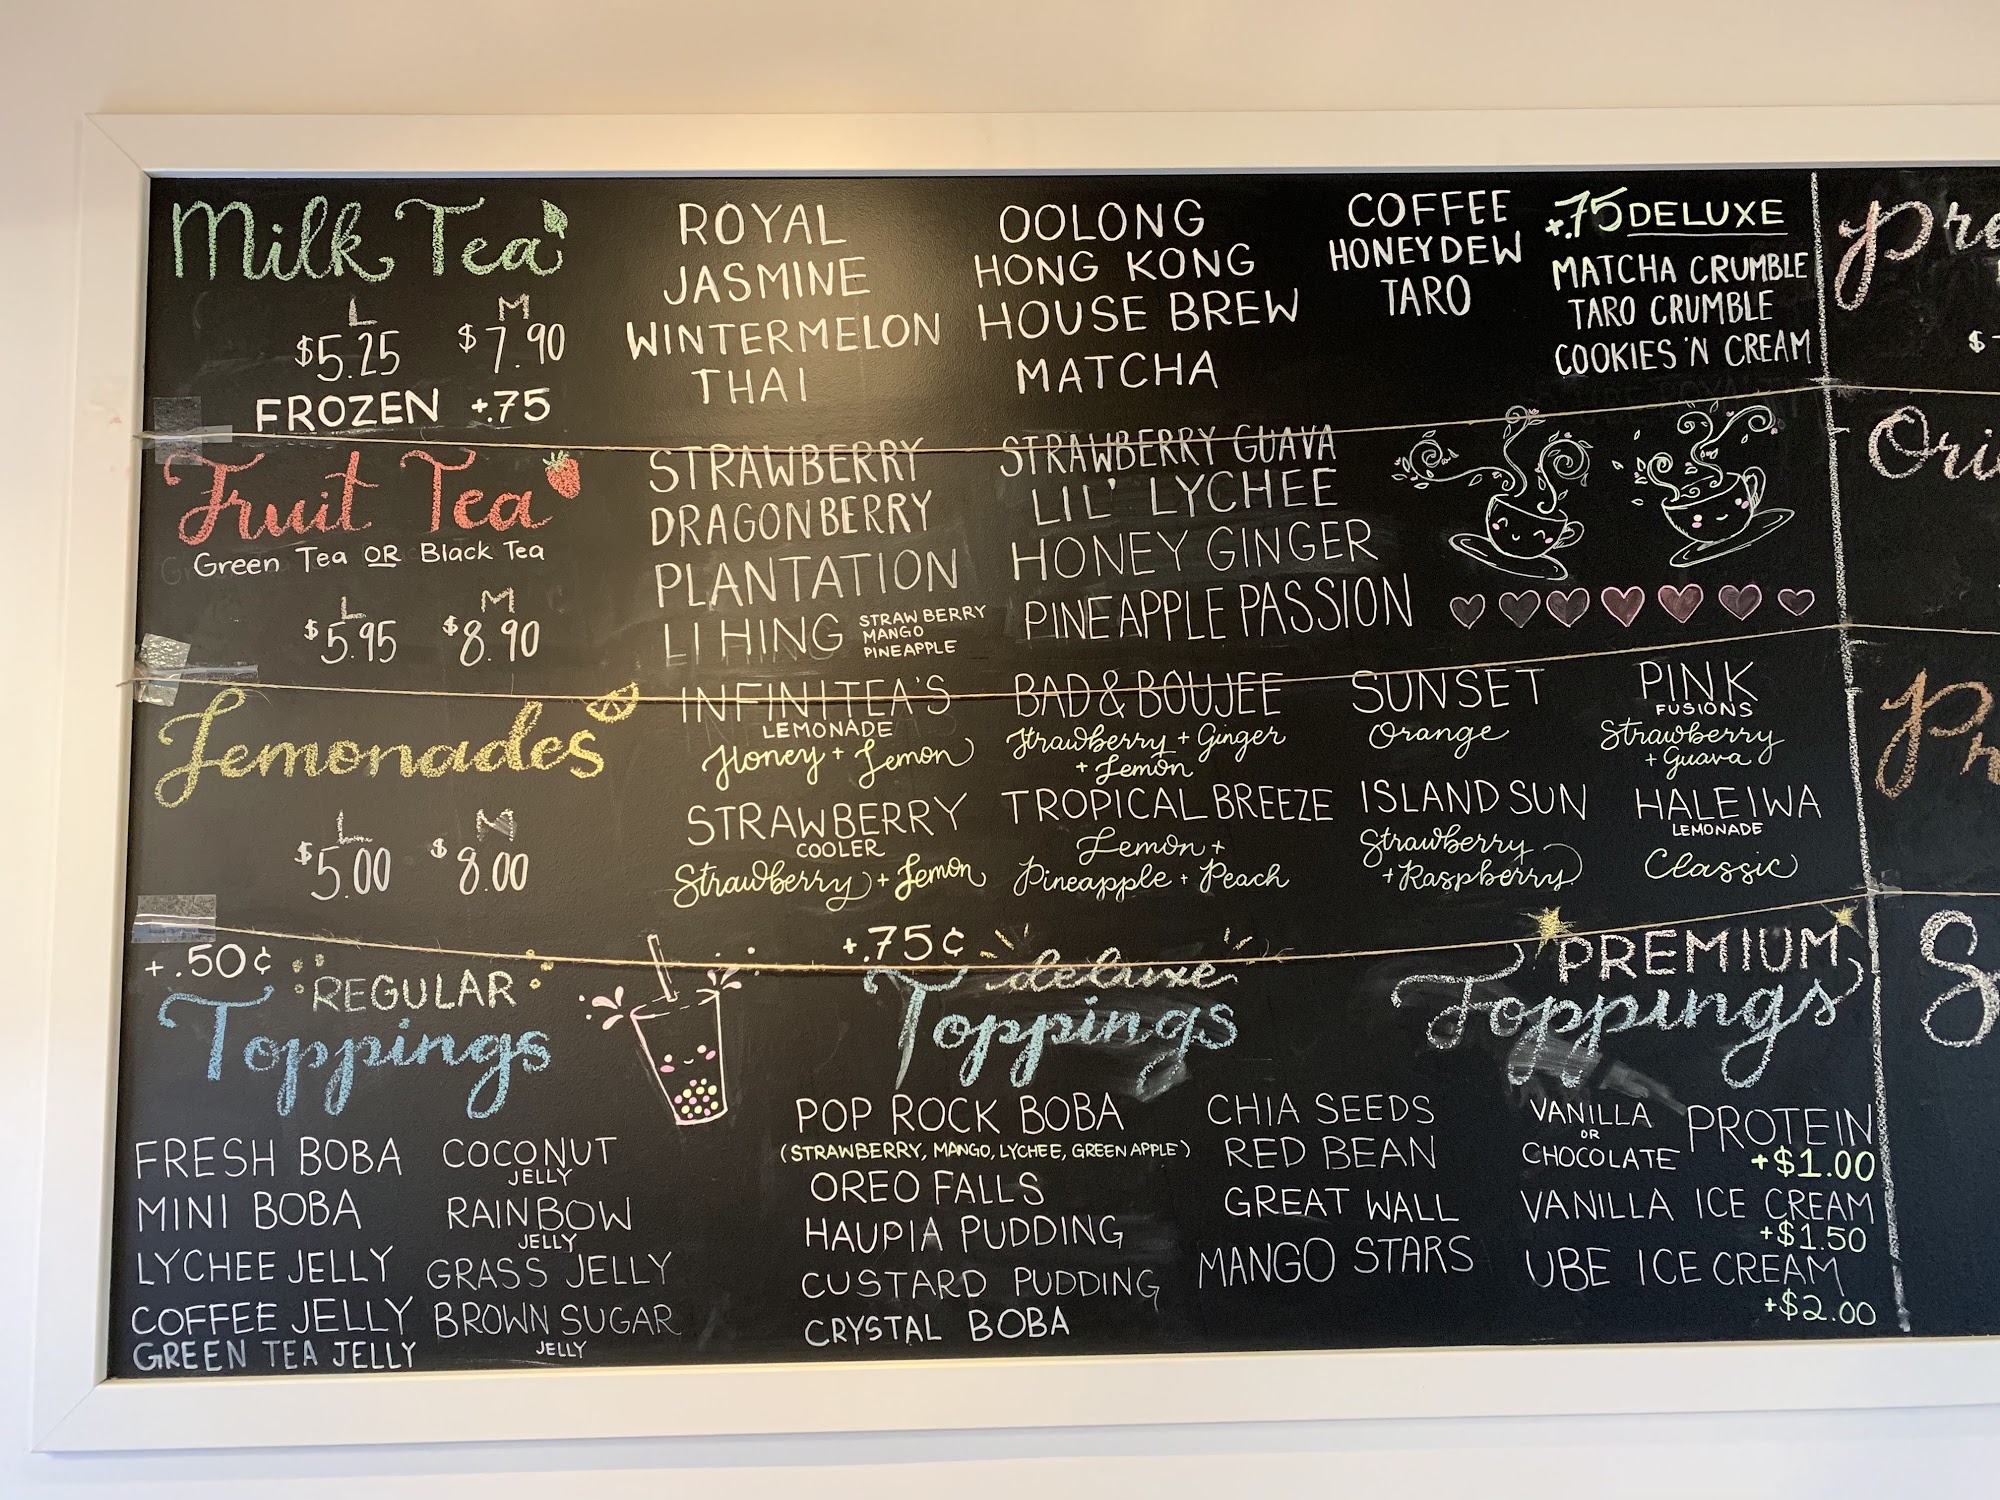 Milk Tea
L M
$5.25 $7.90
FROZEN +.75
ROYAL
JASMINE
WINTERMELON
THAI
OOLONG
HONG KONG
HOUSE BREW
MATCHA
COFFEE
HONEYDEW
TARO
+.75 DELUXE
MATCHA CRUMBLE
TARO CRUMBLE
COOKIES 'N CREAM
Fruit Tea
Green Tea OR Black Tea
L M
$5.95 $8.90
STRAWBERRY
DRAGONBERRY
PLANTATION
LI HING STRAWBERRY
MANGO
PINEAPPLE
STRAWBERRY GUAVA
LIL' LYCHEE
HONEY GINGER
PINEAPPLE PASSION
Lemonades
L M
$5.00 $8.00
INFINITEA'S
LEMONADE
Honey + Lemon
STRAWBERRY
COOLER
Strawberry + Lemon
BAD & BOUJEE
Strawberry + Ginger
+ Lemon
TROPICAL BREEZE
Lemon +
Pineapple + Peach
SUNSET
Orange
ISLAND SUN
Strawberry
+ Raspberry
PINK
FUSIONS
Strawberry
+ Guava
HALEIWA
LEMONADE
Classic
+.50¢ REGULAR
Toppings
FRESH BOBA
MINI BOBA
LYCHEE JELLY
COFFEE JELLY
GREEN TEA JELLY
COCONUT
JELLY
RAINBOW
JELLY
GRASS JELLY
BROWN SUGAR
JELLY
+.75¢ deluxe
Toppings
POP ROCK BOBA
(STRAWBERRY, MANGO, LYCHEE, GREEN APPLE)
OREO FALLS
HAUPIA PUDDING
CUSTARD PUDDING
CRYSTAL BOBA
CHIA SEEDS
RED BEAN
GREAT WALL
MANGO STARS
PREMIUM
Toppings
VANILLA
OR
CHOCOLATE PROTEIN
+$1.00
VANILLA ICE CREAM
+$1.50
UBE ICE CREAM
+$2.00